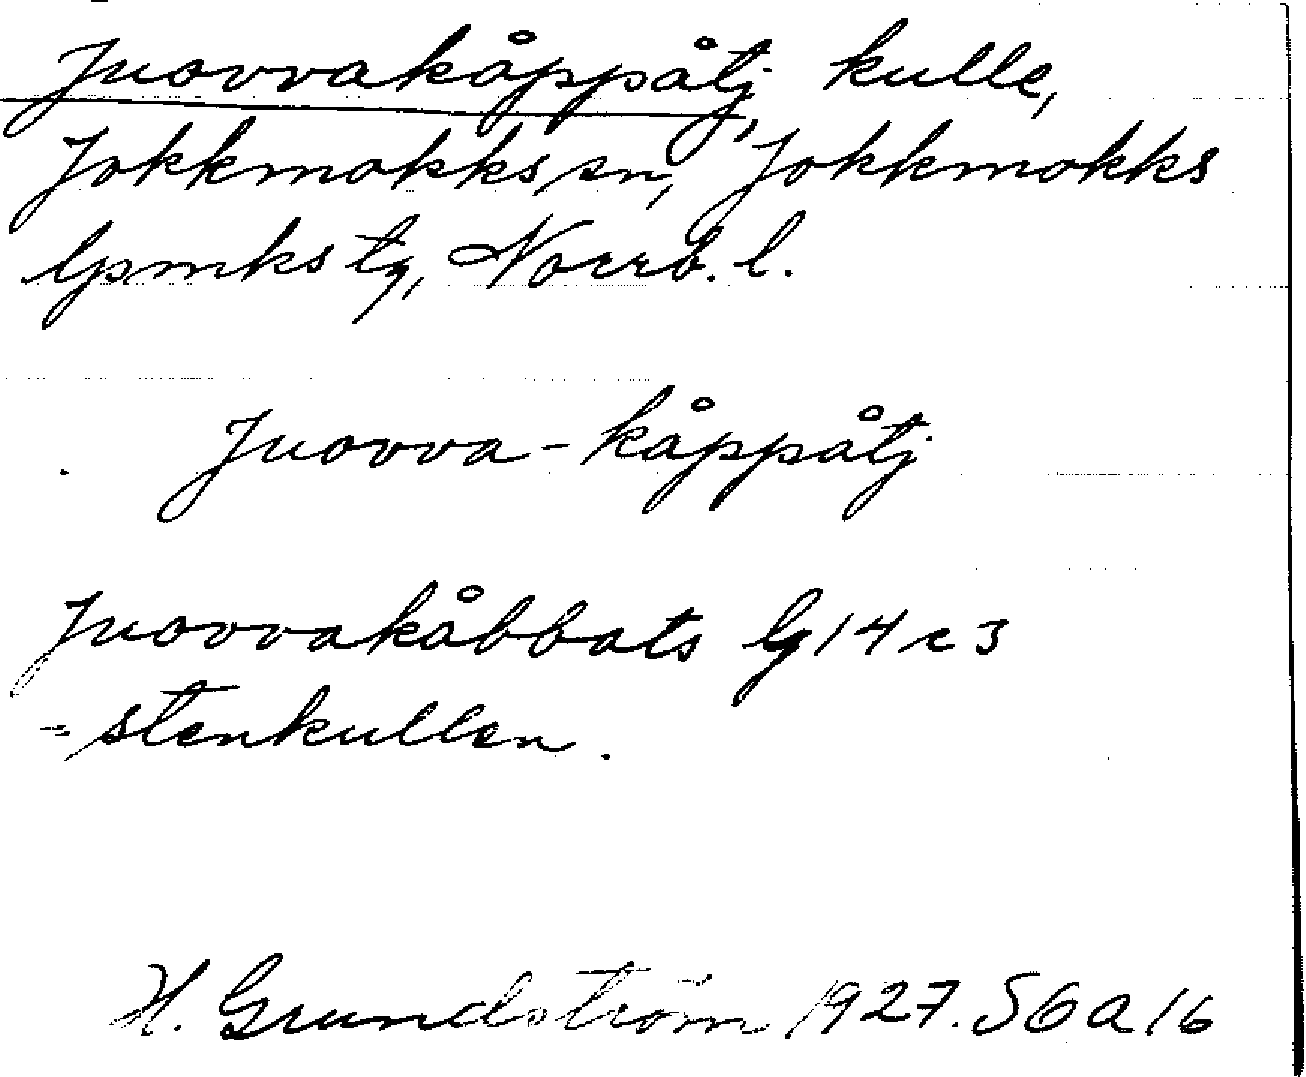 Juovvakåppåtj, kulle,
Jokkmokks sn, Jokkmokks
lpmks tg, Norrb. l.
Juovva-kåppåtj
Juovvakåbbats lg 14 c 3
= stenkullen.
H. Grundström 1927. S6a16